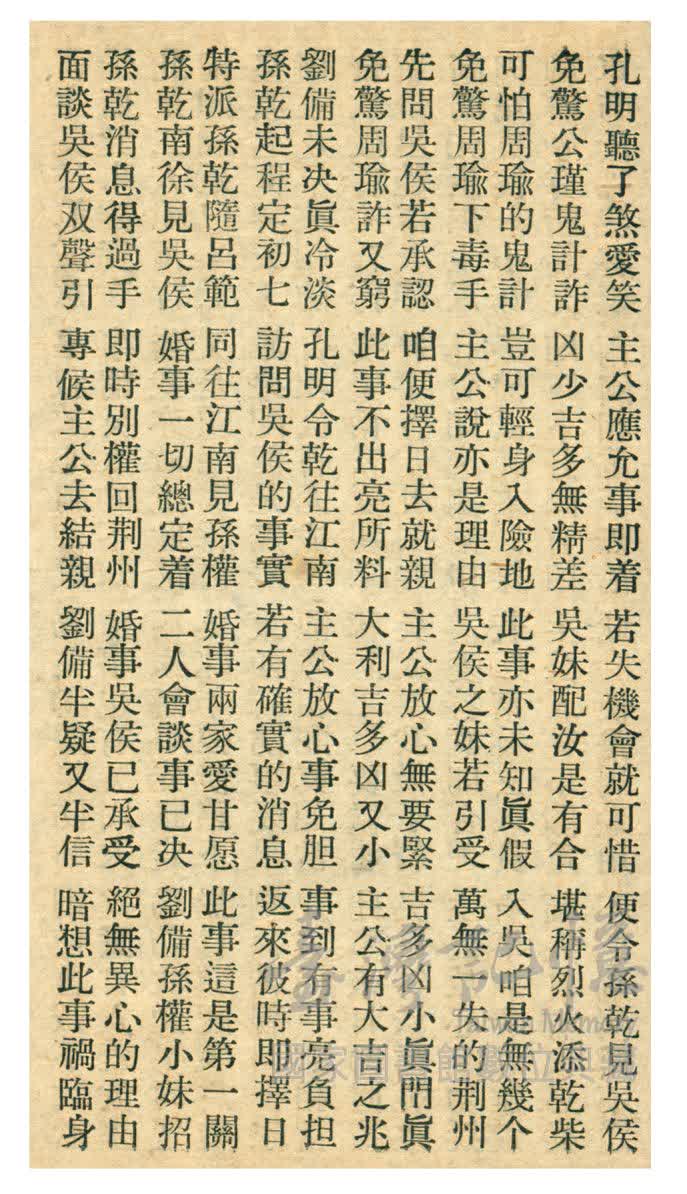 孔明聽了煞愛笑 主公應允事即着 若失機會就可惜 便令孫乾見吳侯
免驚公瑾鬼計詐 凶少吉多無精差 吳妹配汝是有合 堪稱烈火添乾柴
可怕周瑜的鬼計 豈可輕身入險地 此事亦未知眞假 入吳咱是無幾个
免驚周瑜下毒手 主公說亦是理由 吳侯之妹若引受 萬無一失的荆州
先問吳侯若承認 咱便擇日去就親 主公放心無要緊 吉多凶小眞閂眞
免驚周瑜詐又窮 此事不出亮所料 大利吉多凶又小 主公有大吉之兆
劉備未決眞冷淡 孔明令乾往江南 主公放心事免胆 事到有事亮負担
孫乾起程定初七 訪問吳侯的事實 若有確實的消息 返來彼時即擇日
特派孫乾隨呂範 同往江南見孫權 婚事兩家愛甘愿 此事這是第一關
孫乾南徐見吳侯 婚事一切總定着 二人會談事已决 劉備孫權小妹招
孫乾消息得過手 即時別權回荆州 婚事吳侯已承受 絕無異心的理由
面談吳侯双聲引 專候主公去結親 劉備半疑又半信 暗想此事禍臨身
臺灣記憶
Taiwan Memory
國家圖書館